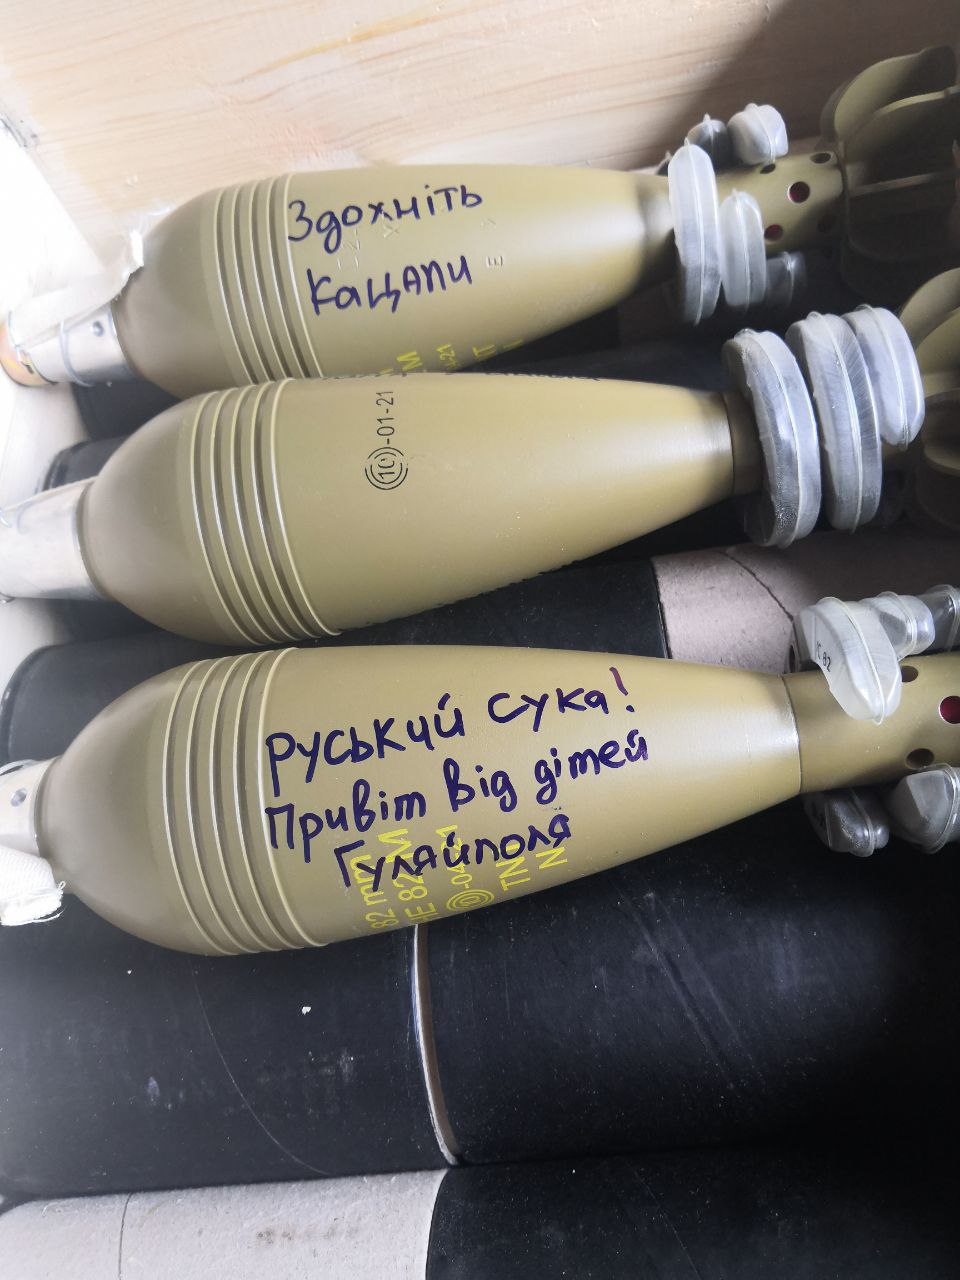 Здохніть
Кацапи
Е
10 -01-21
руський сука!
Привіт від дітей
Гуляйполя
82 mm
HE 82 M
-04-21
TNT
1С 82